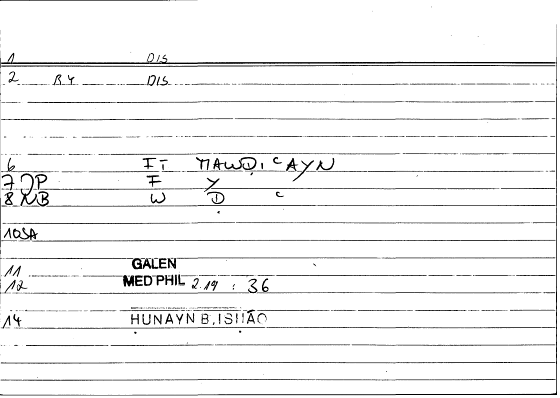 1 DIS
2 BY DIS
6 FI MAWḌIʿ ʿAYN
7 JP F Y
8 NB W Ḍ ʿ
10 SA
11 GALEN
12 MED PHIL 2.19 : 36
14 ḤUNAYN B. ISḤĀQ